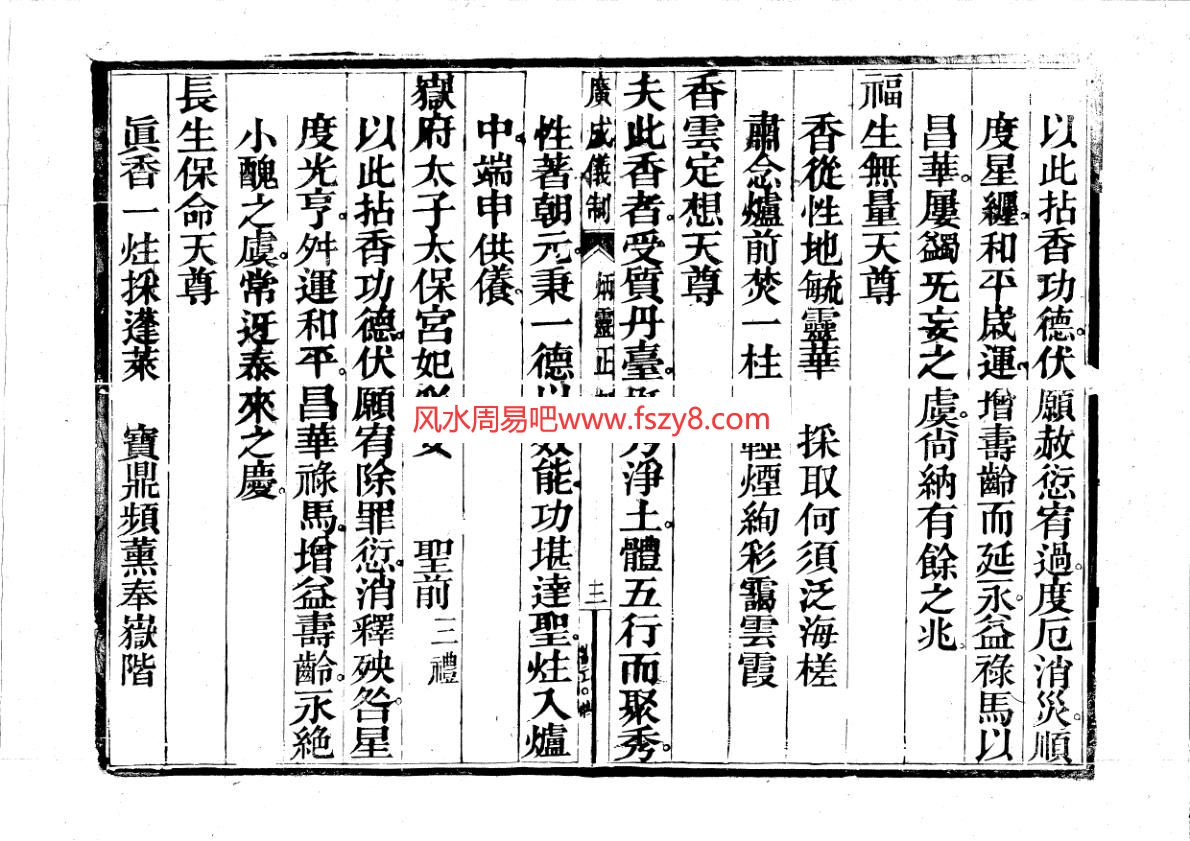 以此拈香功德。伏願赦愆宥過。度厄消災。順
度星纏。和平歲運。增壽齡而延永。益祿馬以
昌華。屢蠲旡妄之虞。尚納有餘之兆。
福生無量天尊
香從性地毓靈華　採取何須泛海槎
肅念爐前焚一炷　輕煙絢彩靄雲霞
香雲定想天尊
夫此香者。受質丹臺 淨土。體五行而聚秀。
廣成儀制 炳靈正 三
性著朝元。秉一德以效能。功堪達聖。炷入爐
中。端申供儀。
嶽府太子太保宮妃 聖前 三禮
以此拈香功德。伏願宥除罪愆。消釋殃咎。星
度光亨。舛運和平。昌華祿馬。增益壽齡。永絕
小醜之虞。常迓泰來之慶。
長生保命天尊
眞香一炷採蓬萊　寶鼎頻薰奉嶽階
风水周易吧www.fszy8.com